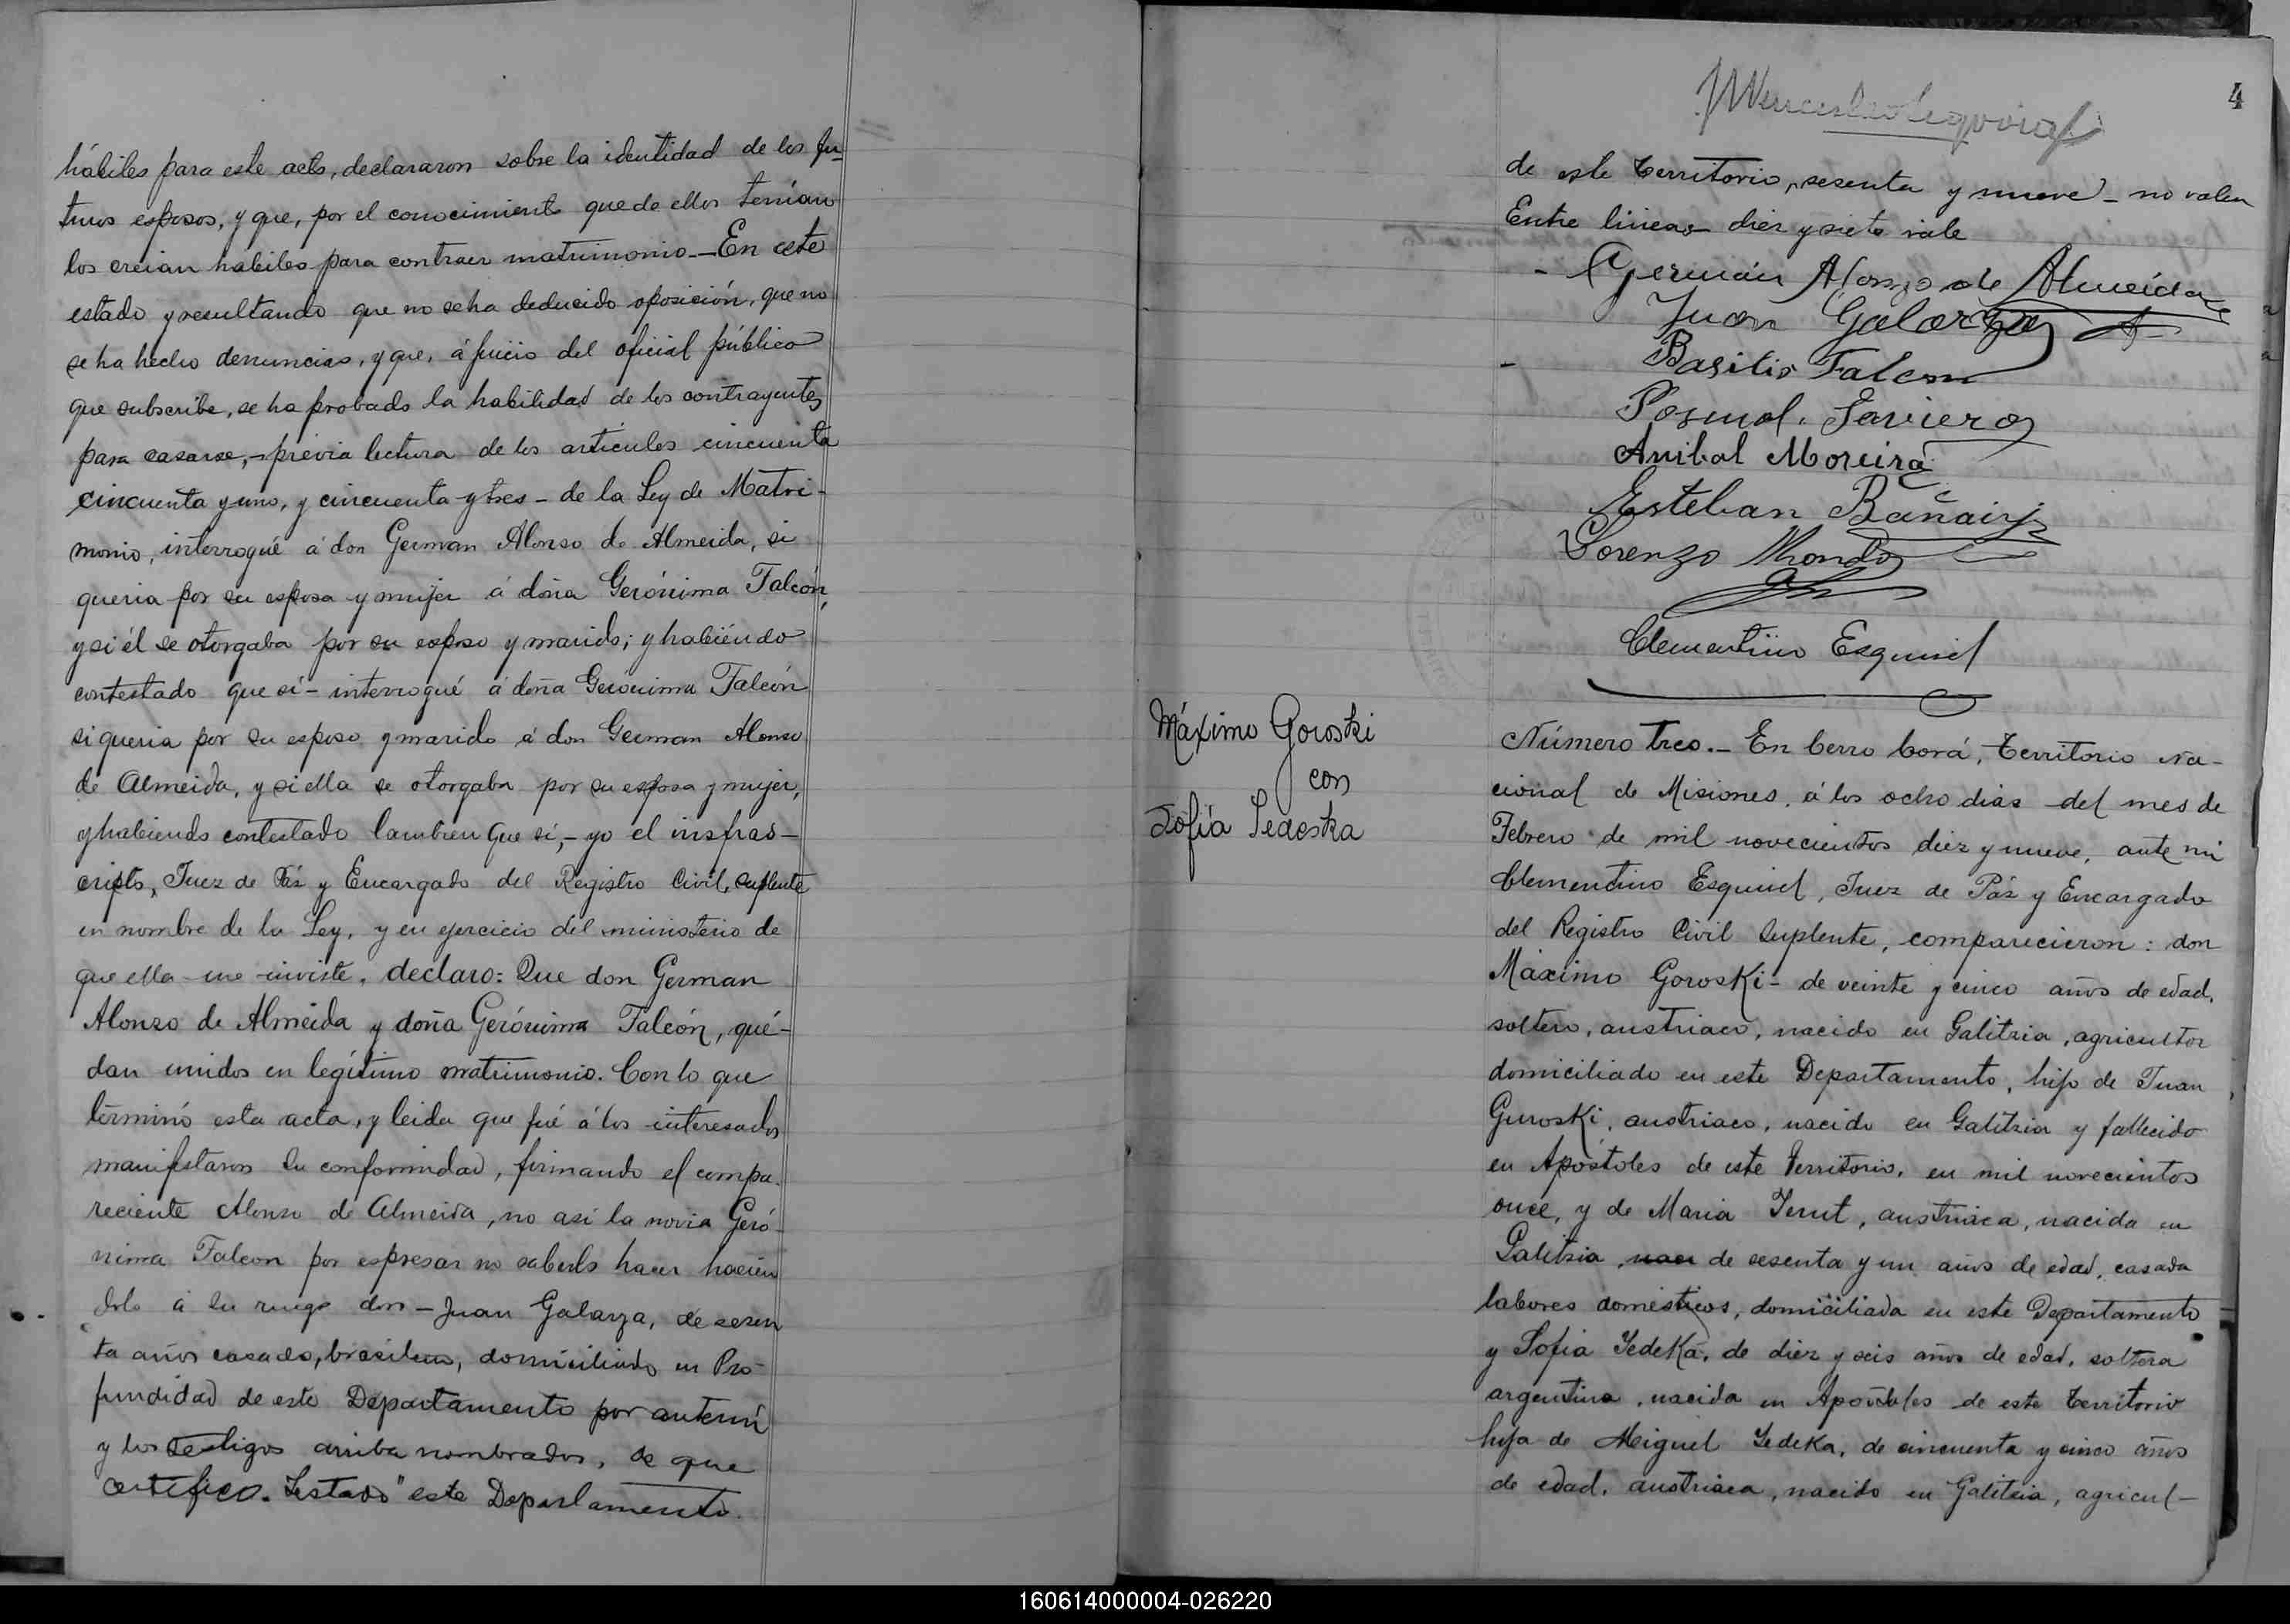 hábiles para este acto, declararon sobre la identidad de los fu-
turos esposos, y que, por el conocimiento que de ellos tenían
los creían habiles para contraer matrimonio.—En este
estado y resultando que no se ha deducido oposición, que no
se ha hecho denuncias, y que, á juicio del oficial público
que subscribe, se ha probado la habilidad de los contrayentes
para casarse,—prévia lectura de los artículos cincuenta
cincuenta y uno, y cincuenta y tres — de la Ley de Matri-
monio, interrogué á don German Alonso de Almeida, si
queria por su esposa y mujer á doña Gerónima Falcón,
y si él se otorgaba por su esposo y marido; y habiéndo
contestado que sí — interrogué á doña Gerónima Falcón
si queria por su esposo y marido á don German Alonso
de Almeida, y si ella se otorgaba por su esposa y mujer,
y habiendo contestado tambien que sí,— yo el insfras-
cripto, Juez de Páz y Encargado del Registro Civil, suplente
en nombre de la Ley, y en ejercicio del ministerio de
que ella me inviste, declaro: Que don German
Alonzo de Almeida y doña Gerónima Falcón, qué-
dan unidos en legítimo matrimonio. Con lo que
términó esta acta, y leida que fué á los interesados
manifestaron su conformidad, firmando el compa-
reciente Alonso de Almeida, no así la novia Geró-
nima Falcon por espresar no saberlo hacer hacien
dolo á su ruego don — Juan Galarza, de sesen
ta años casado, brasilero, domiciliado en Pro-
fundidad de este Departamento por antemí
y los testigos arriba nombrados, de que
certifico. Testado "este Departamento
4
de este territorio, sesenta y nueve — no valen
Entre lineas diez y siete vale
German Alonzo de Almeida
Juan Galarza
Basilio Falcon
Pascual Javiero
Anibal Moreira
Esteban
Lorenzo
Clementino Esquivel
Máximo Goroski
con
Sofía Sedeska
Número tres.— En Cerro Corá, Territorio Na-
cional de Misiones, á los ocho dias del mes de
Febrero de mil novecientos diez y nueve, ante mi
Clementino Esquivel, Juez de Páz y Encargado
del Registro Civil Suplente, comparecieron: don
Máximo Goroski — de veinte y cinco años de edad,
soltero, austriaco, nacido en Galitzia, agricultor
domiciliado en este Departamento, hijo de Juan
Guroski, austriaco, nacido en Galitzia y fallecido
en Apóstoles de este Territorio, en mil novecientos
once, y de Maria, austriaca, nacida en
Galitzia, de sesenta y un años de edad, casada
labores domésticos, domiciliada en este Departamento
y Sofia Sedeka, de diez y seis años de edad, soltera
argentina, nacida en Apóstoles de este Territorio
hija de Miguel Sedeka, de cincuenta y cinco años
de edad, austriaca, nacido en Galitzia, agricul-
160614000004-026220